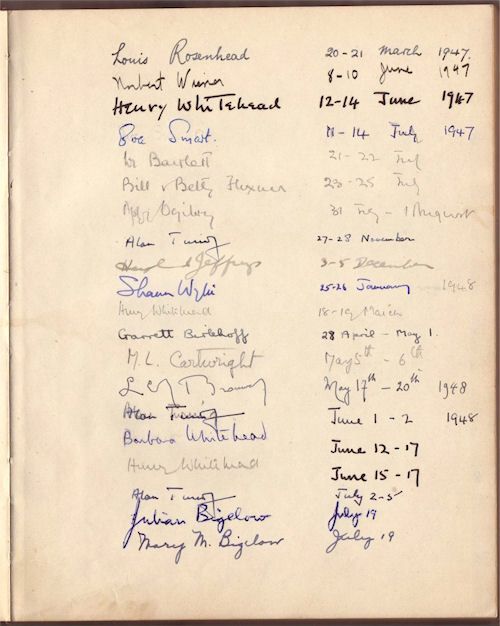 Louis Rosenhead 20-21 March 1947.
Norbert Wiener 8-10 June 1947
Henry Whitehead 12-14 June 1947
Eva Smart. 11-14 July 1947
W Bartlett 21-22 July
Bill & Betty Flexner 23-25 July
Ogilvy 31 July - 1 August
Alan Turing 27-28 November
Harold Jeffreys 3-5 December
Shaun Wylie 25-26 January 1948
Henry Whitehead 18-19 March
Garrett Birkhoff 28 April - May 1.
M.L. Cartwright May 5th - 6th
May 17th - 20th 1948
Alan Turing June 1-2 1948
Barbara Whitehead June 12-17
Henry Whitehead June 15-17
Alan Turing July 2-5
Julian Bigelow July 19
Mary M. Bigelow July 19